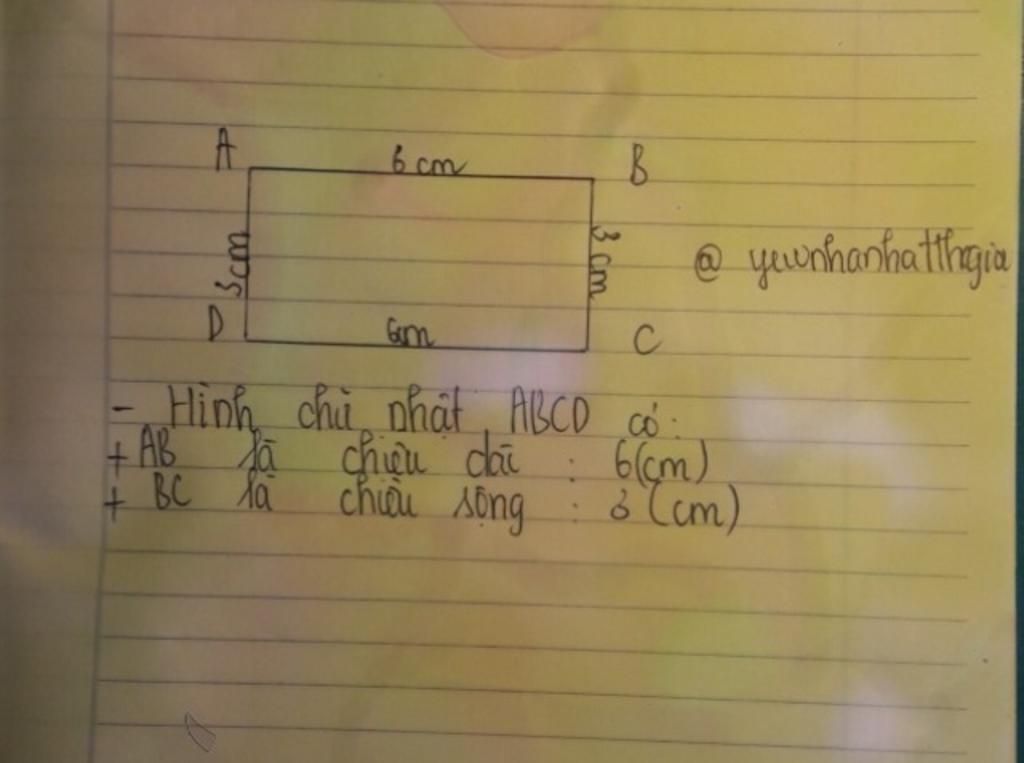 A 6 cm B
3 cm
3 cm
@ yeunhanhatthegioi
D 6cm C
- Hình chữ nhật ABCD có:
+ AB là chiều dài : 6(cm)
+ BC là chiều rộng : 3 (cm)